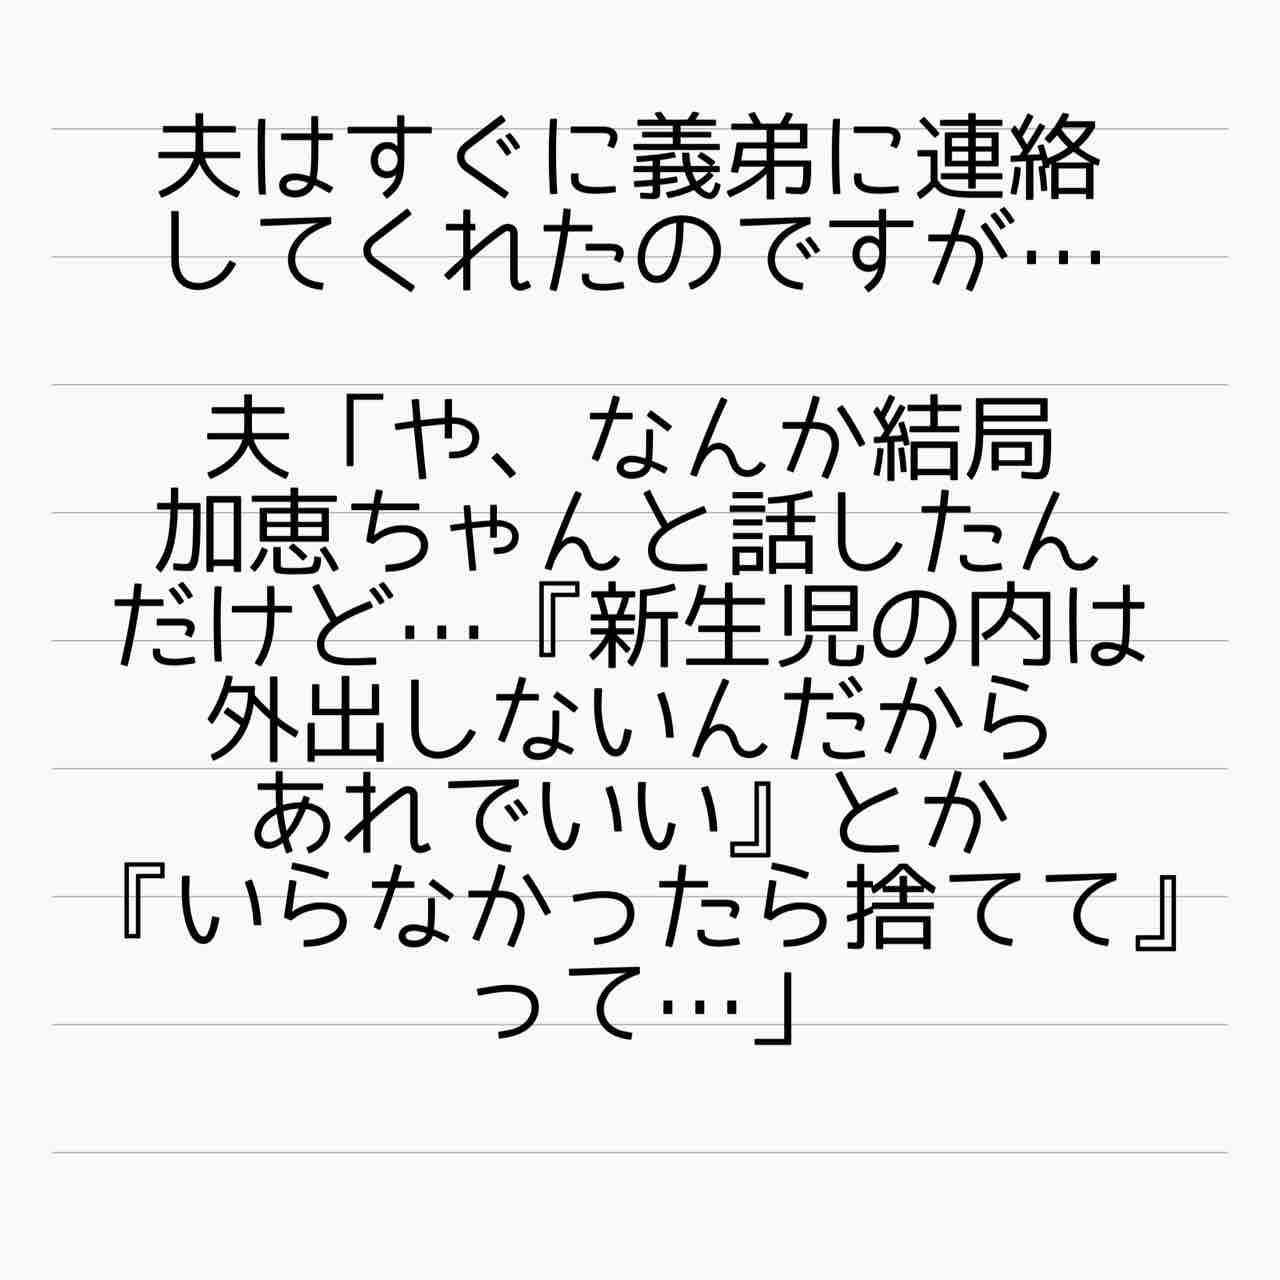 夫はすぐに義弟に連絡
してくれたのですが…
夫「や、なんか結局
加恵ちゃんと話したん
だけど…『新生児の内は
外出しないんだから
あれでいい』とか
『いらなかったら捨てて』
って…」